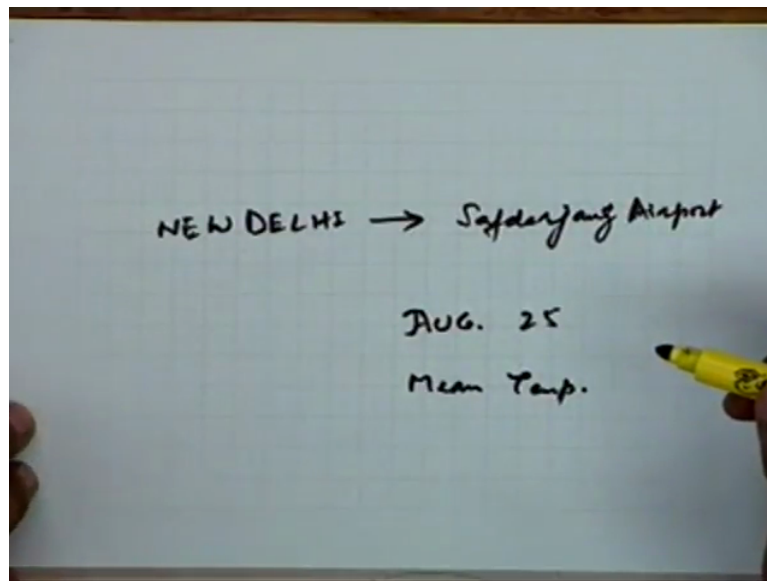 NEW DELHI → Safdarjang Airport
AUG. 25
Mean Temp.